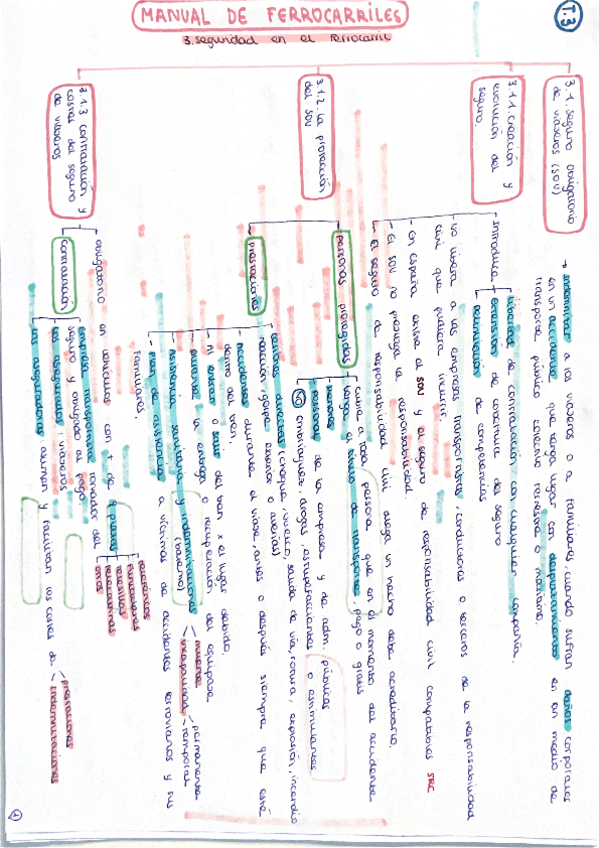 T.3
MANUAL DE FERROCARRILES
3. seguridad en el ferrocarril
3.1. seguro obligatorio
de viajeros (SOV)
→ indemnizar a los viajeros o a familiares, cuando sufran daños corporales
en un accidente que tenga lugar con desplazamiento en un medio de
transporte público colectivo terrestre o marítimo.
3.1.1. creación y
evolución del
seguro.
- introduce
libertad de contratación con cualquier compañía.
extensión de cobertura del seguro
de competencias
- no libera a las empresas transportistas, conductores o terceros de la responsabilidad
civil que pudiera incurrir.
- en españa exista el SOV y el seguro de responsabilidad civil compatibles SRC
- El SOV no prejuzga la responsabilidad.
- El seguro de responsabilidad civil alega un hecho debe acreditarlo.
3.1.2 La protección
del SOV
personas protegidas
cubre a toda persona que en el momento del accidente
tenga el título de transporte, pago o gratis
menores
personal de la empresa y de adm. públicas
NO embriagues, drogas, estupefacientes o estimulantes
prestaciones
lesiones directas (choque, vuelco, salida de vía, rotura, explosión, incendio
reacción, golpe exterior o averías)
accidentes durante el viaje, antes o después siempre que esté
dentro del tren.
Al entrar o salir del tren x el lugar debido.
durante la entrega o recuperación del equipaje
Asistencia sanitaria y indemnizaciones
(baremo)
muerte
incapacidad
permanente
temporal
- plan de asistencia a víctimas de accidentes ferroviarios y sus
familiares.
3.1.3 contratación y
costes del seguro
de viajeros
obligatorio en vehículos con + de 9 plazas
teleféricos
funiculares
telesillas
telecabinas
otros
contratación
empresa transportista tomador del
seguro y obligado al pago
los asegurados: viajeros
las aseguradoras asumen y facilitan los costes de
prestaciones
indemnizaciones
1